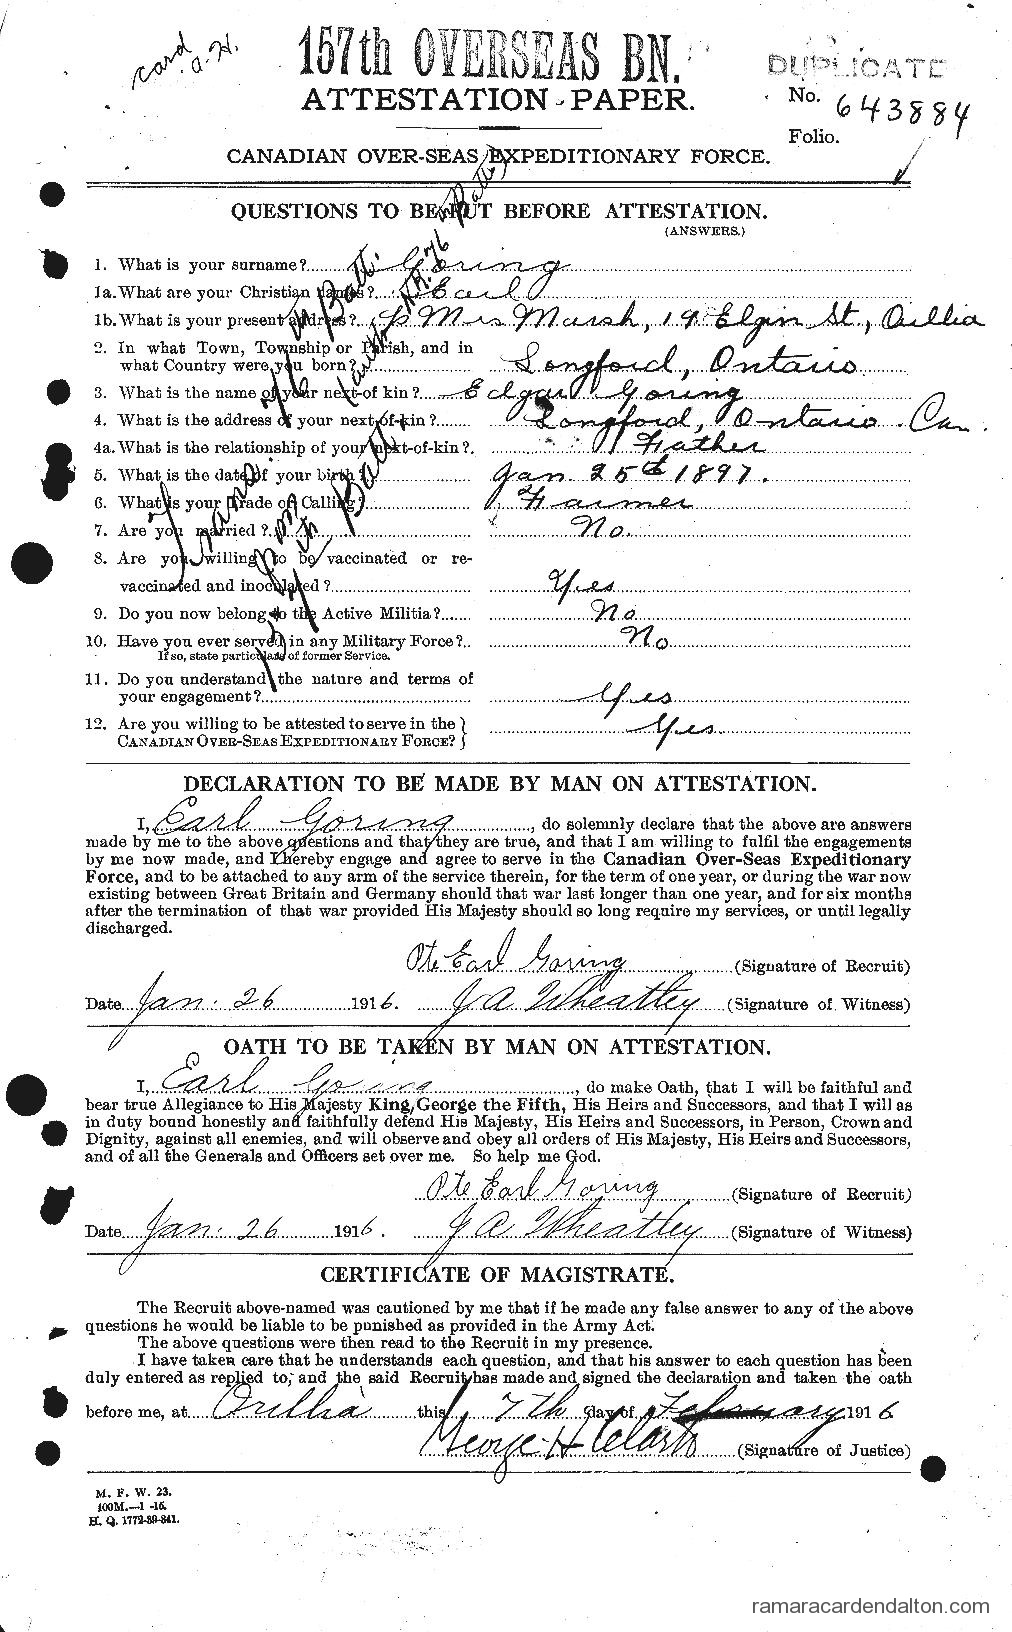 card
a.H.
157th OVERSEAS BN.
DUPLICATE
ATTESTATION PAPER.
No. 643884
Folio.
CANADIAN OVER-SEAS EXPEDITIONARY FORCE.
QUESTIONS TO BE PUT BEFORE ATTESTATION.
(ANSWERS.)
1. What is your surname? Goring
1a. What are your Christian names? Earl
1b. What is your present address? c/o Mrs Marsh, 19 Elgin St, Orillia
2. In what Town, Township or Parish, and in
what Country were you born? Longford, Ontario
3. What is the name of your next-of kin? Edgar Goring
4. What is the address of your next-of-kin? Longford, Ontario Can.
4a. What is the relationship of your next-of-kin? Father
5. What is the date of your birth? Jan 25th 1897.
6. What is your Trade or Calling? Farmer
7. Are you married? No.
8. Are you willing to be vaccinated or re-
vaccinated and inoculated? Yes
9. Do you now belong to the Active Militia? No
10. Have you ever served in any Military Force? No
If so, state particulars of former Service.
11. Do you understand the nature and terms of
your engagement? Yes
12. Are you willing to be attested to serve in the }
CANADIAN OVER-SEAS EXPEDITIONARY FORCE? } Yes.
76 th Batt.
157 th Batt
DECLARATION TO BE MADE BY MAN ON ATTESTATION.
I, Earl Goring, do solemnly declare that the above are answers
made by me to the above questions and that they are true, and that I am willing to fulfil the engagements
by me now made, and I hereby engage and agree to serve in the Canadian Over-Seas Expeditionary
Force, and to be attached to any arm of the service therein, for the term of one year, or during the war now
existing between Great Britain and Germany should that war last longer than one year, and for six months
after the termination of that war provided His Majesty should so long require my services, or until legally
discharged.
Pte Earl Goring (Signature of Recruit)
Date Jan. 26 1916. J A Wheatley (Signature of Witness)
OATH TO BE TAKEN BY MAN ON ATTESTATION.
I, Earl Goring, do make Oath, that I will be faithful and
bear true Allegiance to His Majesty King George the Fifth, His Heirs and Successors, and that I will as
in duty bound honestly and faithfully defend His Majesty, His Heirs and Successors, in Person, Crown and
Dignity, against all enemies, and will observe and obey all orders of His Majesty, His Heirs and Successors,
and of all the Generals and Officers set over me. So help me God.
Pte Earl Goring (Signature of Recruit)
Date Jan. 26 1916. J A Wheatley (Signature of Witness)
CERTIFICATE OF MAGISTRATE.
The Recruit above-named was cautioned by me that if he made any false answer to any of the above
questions he would be liable to be punished as provided in the Army Act.
The above questions were then read to the Recruit in my presence.
I have taken care that he understands each question, and that his answer to each question has been
duly entered as replied to, and the said Recruit has made and signed the declaration and taken the oath
before me, at Orillia this 7th day of February 1916
George H Clark (Signature of Justice)
M. F. W. 23.
100M.—1-16.
H. Q. 1772-39-841.
ramaracardendalton.com